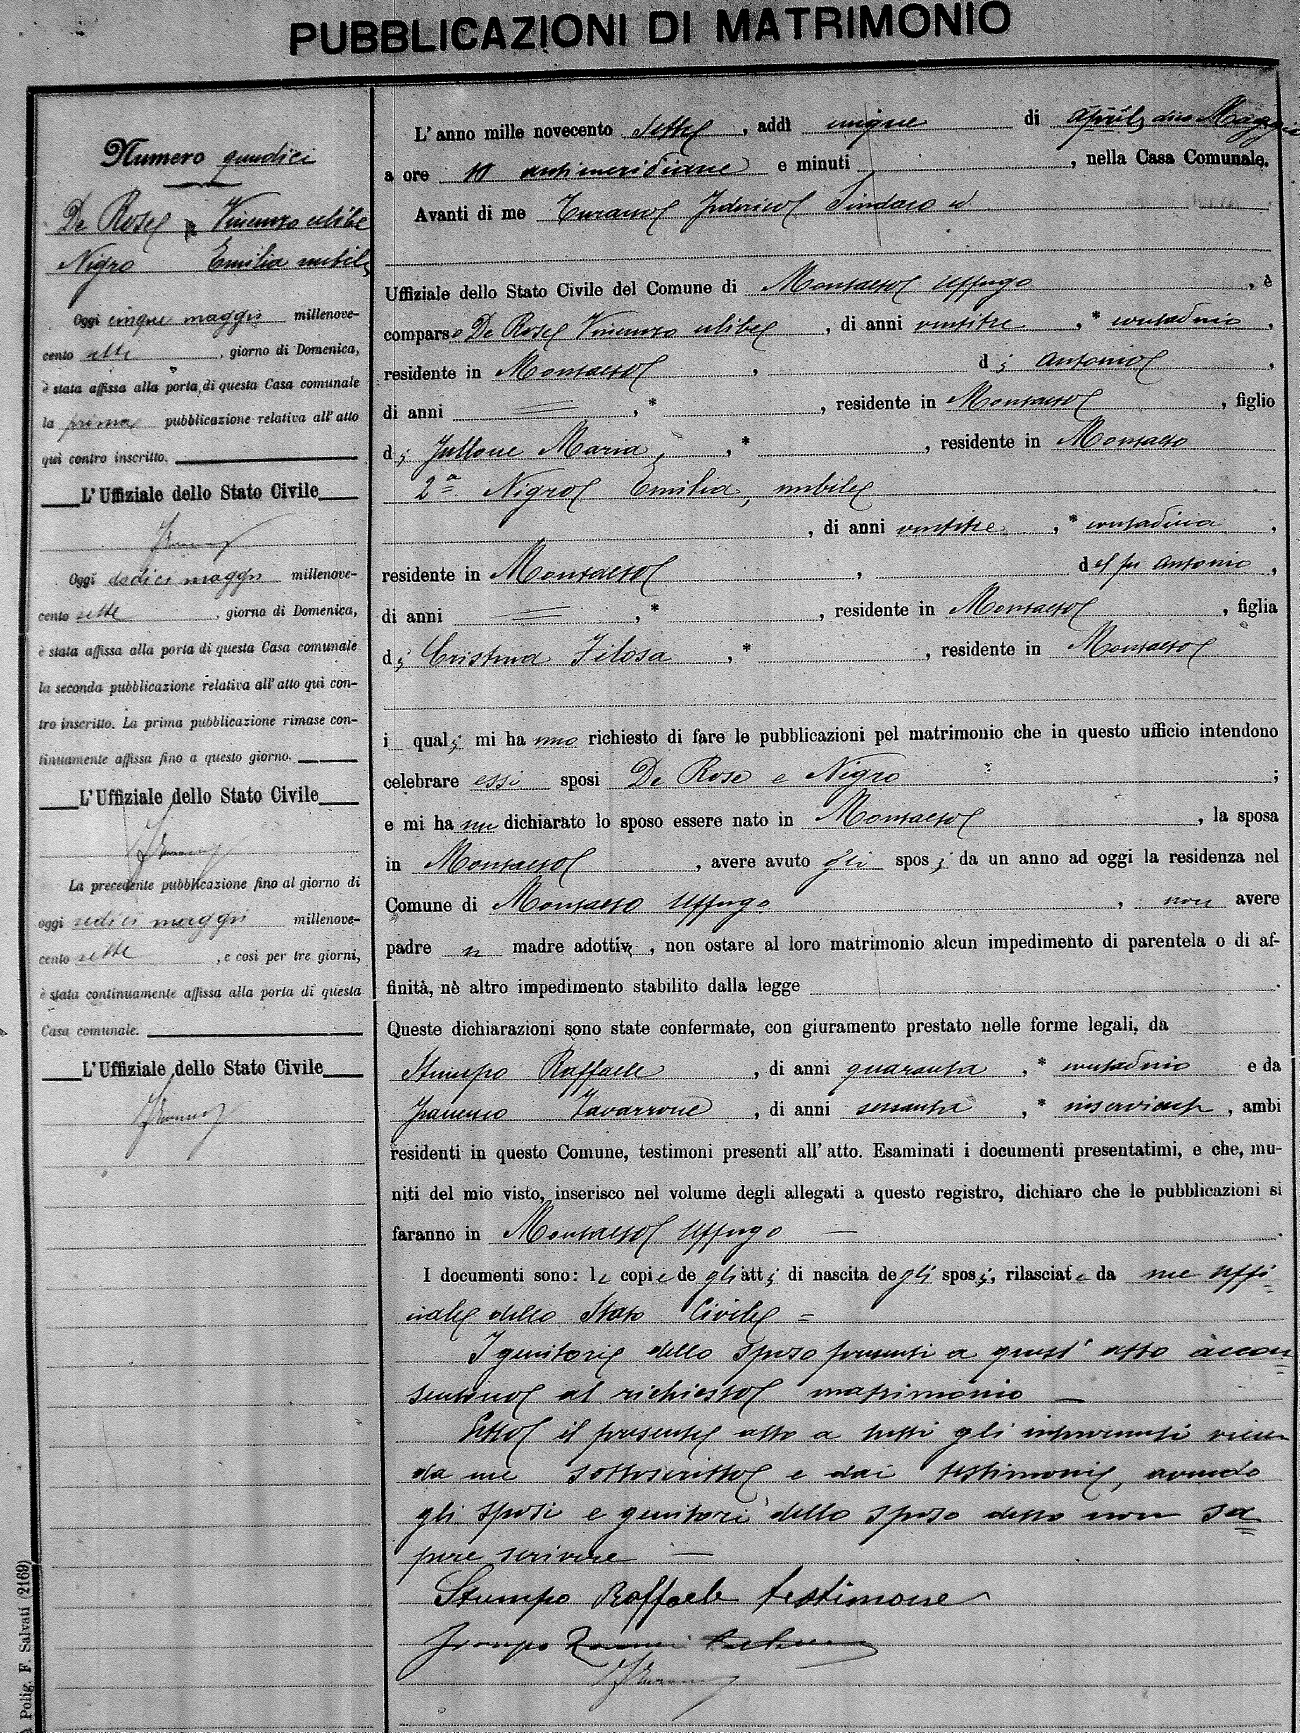 PUBBLICAZIONI DI MATRIMONIO
Numero quindici
De Rose Vincenzo celibe
Nigro Emilia nubile
Oggi cinque maggio millenove-
cento sette, giorno di Domenica,
è stata affissa alla porta di questa Casa comunale
la prima pubblicazione relativa all'atto
qui contro inscritto.
L'Uffiziale dello Stato Civile
Oggi dodici maggio millenove-
cento sette, giorno di Domenica,
è stata affissa alla porta di questa Casa comunale
la seconda pubblicazione relativa all'atto qui con-
tro inscritto. La prima pubblicazione rimase con-
tinuamente affissa fino a questo giorno.
L'Uffiziale dello Stato Civile
La precedente pubblicazione fino al giorno di
oggi sedici maggio millenove-
cento sette, e così per tre giorni,
è stata continuamente affissa alla porta di questa
Casa comunale.
L'Uffiziale dello Stato Civile
Polig. F. Salvati (2169)
L'anno mille novecento sette, addì cinque di aprile, dico Maggio
a ore antimeridiane e minuti, nella Casa Comunale.
Avanti di me Sindaco
Uffiziale dello Stato Civile del Comune di Montalto Uffugo, è
comparso De Rose Vincenzo celibe, di anni ventitre, * contadino,
residente in Montalto, di Antonio,
di anni =, *, residente in Montalto, figlio
di Maria, *, residente in Montalto
2ª Nigro Emilia, nubile
, di anni ventitre, * contadina,
residente in Montalto, del fu Antonio,
di anni =, *, residente in Montalto, figlia
di Cristina Filosa, *, residente in Montalto
i quali mi hanno richiesto di fare le pubblicazioni pel matrimonio che in questo ufficio intendono
celebrare essi sposi De Rose e Nigro;
e mi ha nno dichiarato lo sposo essere nato in Montalto, la sposa
in Montalto, avere avuto gli sposi da un anno ad oggi la residenza nel
Comune di Montalto Uffugo, non avere
padre n madre adottivi, non ostare al loro matrimonio alcun impedimento di parentela o di af-
finità, nè altro impedimento stabilito dalla legge.
Queste dichiarazioni sono state confermate, con giuramento prestato nelle forme legali, da
Stumpo Raffaele, di anni quaranta, * contadino e da
Zavarrone, di anni sessanta, * inserviente, ambi
residenti in questo Comune, testimoni presenti all'atto. Esaminati i documenti presentatimi, e che, mu-
niti del mio visto, inserisco nel volume degli allegati a questo registro, dichiaro che le pubblicazioni si
faranno in Montalto Uffugo.
I documenti sono: le copie degli atti di nascita degli sposi, rilasciate da me uffi=
ciale dello Stato Civile =
I genitori dello sposo presenti a quest'atto accon=
sentono al richiesto matrimonio
Letto il presente atto a tutti gli intervenuti viene
da me sottoscritto e dai testimoni, avendo
gli sposi e genitori dello sposo detto non sa=
pere scrivere
Stumpo Raffaele testimone